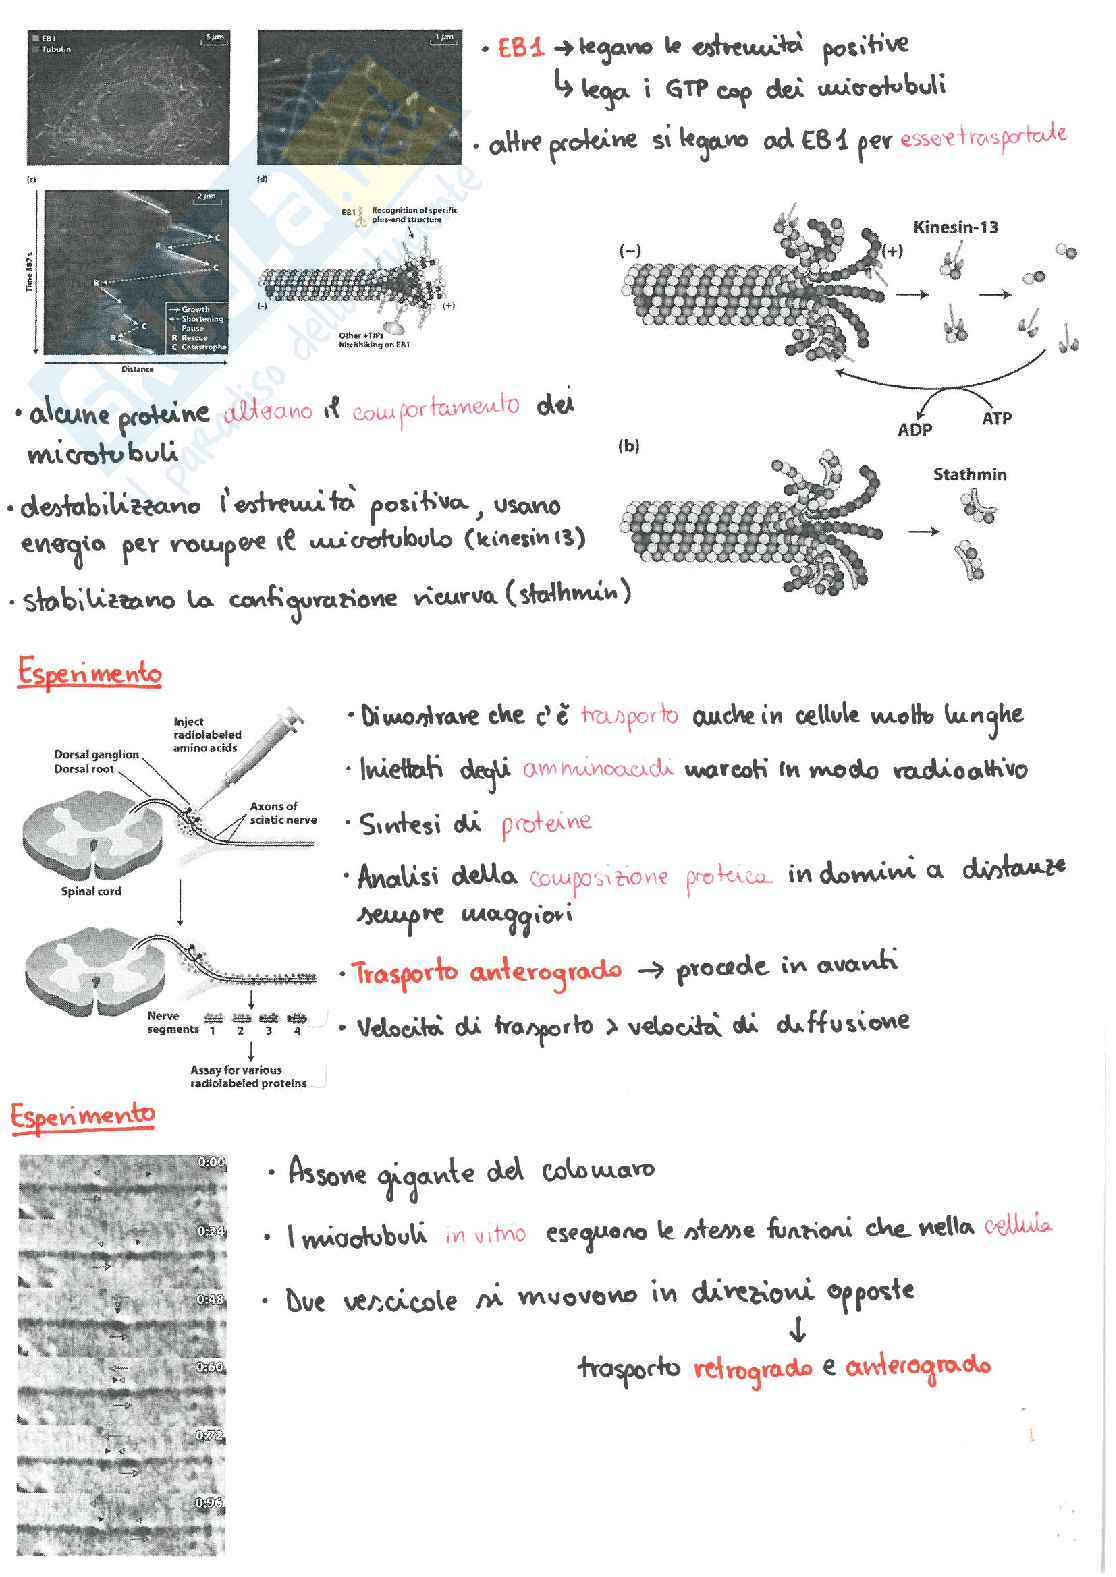 EB1
Tubulin
5 µm
1 µm
(c)
(d)
• EB1 → legano le estremità positive
↳ lega i GTP cap dei microtubuli
• altre proteine si legano ad EB1 per essere trasportate
2 µm
Time 387 s
C
R
C
R
C
R
C
Growth
Shortening
Pause
R Rescue
C Catastrophe
Distance
EB1
Recognition of specific
plus-end structure
(-)
(+)
Other +TIPs
hitchhiking on EB1
(-)
(+)
Kinesin-13
ADP
ATP
(b)
Stathmin
• alcune proteine alterano il comportamento dei
microtubuli
• destabilizzano l'estremità positiva, usano
energia per rompere il microtubulo (kinesin 13)
• stabilizzano la configurazione ricurva (stathmin)
skuola.net
il paradiso dello studente
Esperimento
Inject
radiolabeled
amino acids
Dorsal ganglion
Dorsal root
Axons of
sciatic nerve
Spinal cord
Nerve
segments 1 2 3 4
Assay for various
radiolabeled proteins
• Dimostrare che c'è trasporto anche in cellule molto lunghe
• Iniettati degli amminoacidi marcati in modo radioattivo
• Sintesi di proteine
• Analisi della composizione proteica in domini a distanze
sempre maggiori
• Trasporto anterogrado → procede in avanti
• Velocità di trasporto > velocità di diffusione
Esperimento
0:00
0:24
0:48
0:60
0:72
0:96
• Assone gigante del calamaro
• I microtubuli in vitro eseguono le stesse funzioni che nella cellula
• Due vescicole si muovono in direzioni opposte
↓
trasporto retrogrado e anterogrado